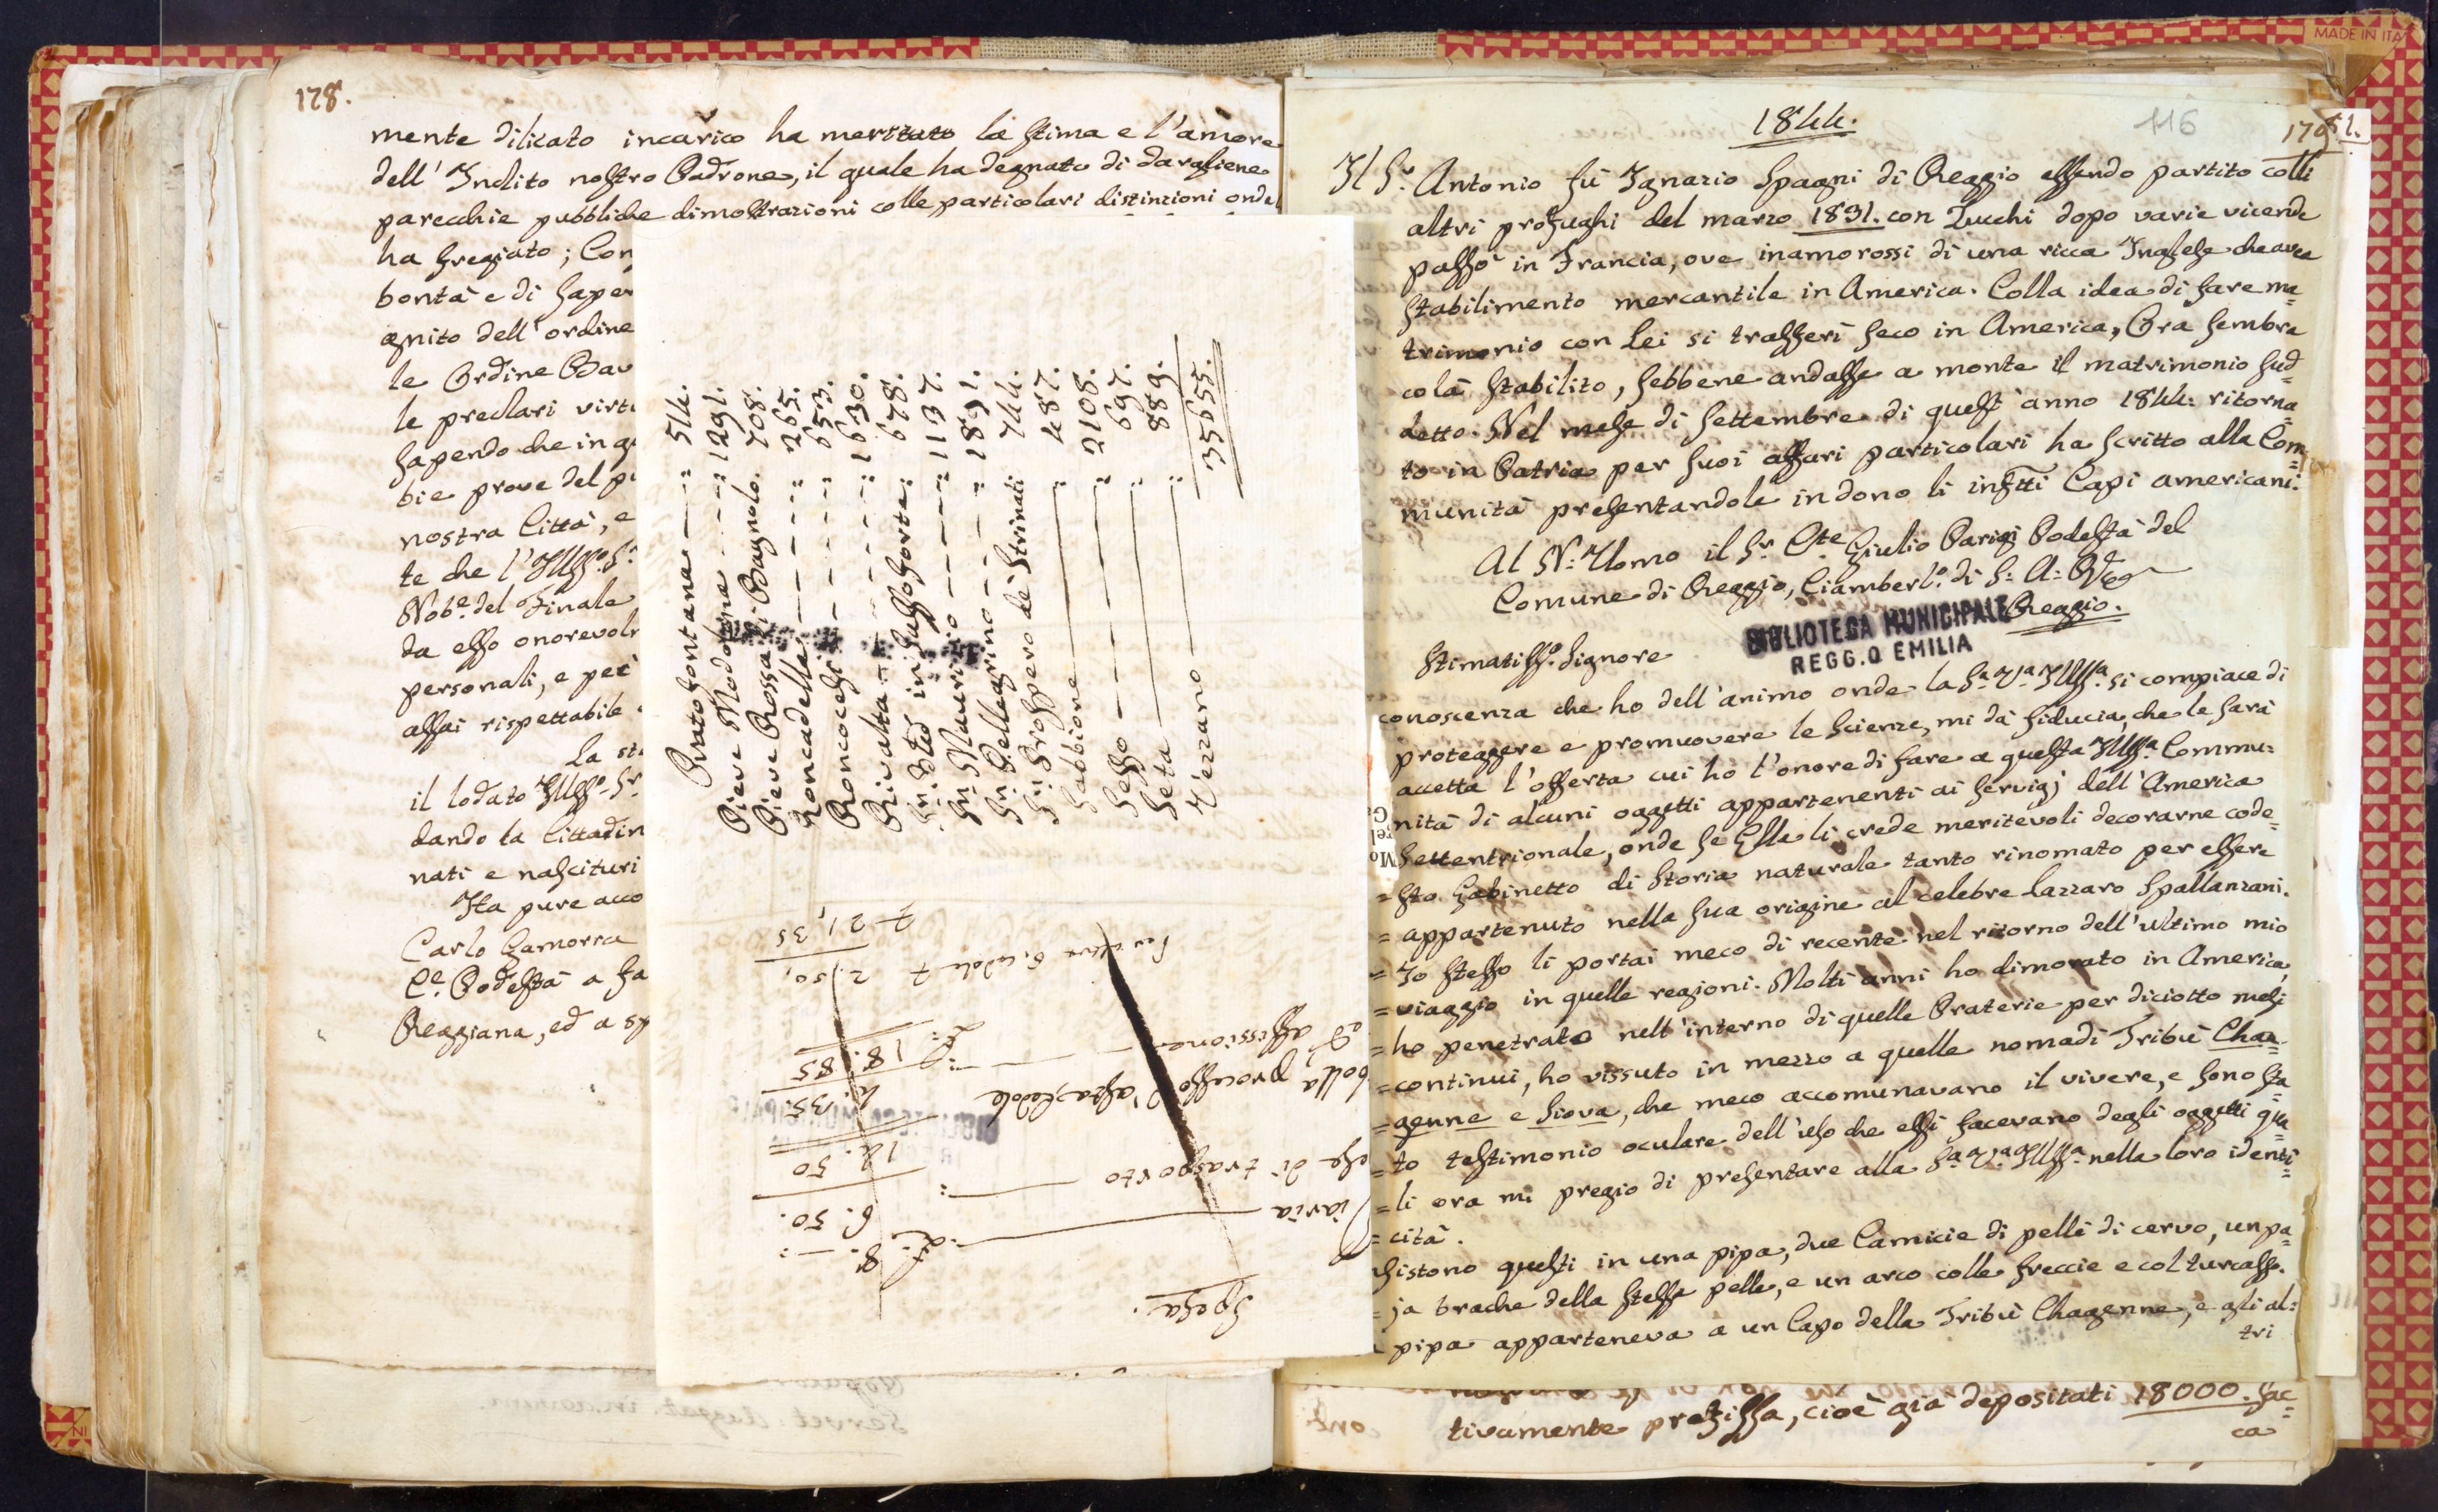 178.
mente dilicato incarico ha meritato la stima e l'amore
dell' Inclito nostro Padrone, il quale ha degnato di dargliene
parecchie pubbliche dimostrazioni colle particolari distinzioni onde
ha fregiato; Con
bontà e di saper
gnito dell' ordine
le Ordine Bav
le preclari virt
sapendo che in q
bie prove del p
nostra Città, e
te che l'Illsso. Sr.
Nobe. del Finale
da esso onorevol
personali, e per
assai rispettabile
La st
il lodato Illsso. Sr.
dando la Cittadin
nati e nascituri
Ita pure acco
Carlo Gamorra
Ce. Podestà a fa
Reggiana, ed a sp
Prato fontana : 544.
Pieve Modolena : 1291.
Pieve Rossa di Bagnolo. 708.
Roncadella : 265.
Roncocesi : 653.
Rivalta : 1630.
Sn. Bto in Gussoforte : 678.
Sn. Maurizio : 1137.
Sn. Pellegrino : 1891.
Sn. Prospero de' Strinati : 744.
Sabbione : 487.
Sesso : 2108.
Seta : 697.
Vezzano : 889.
35655.
Spesa.
Diaria : L. 8. — :
6. 50.
ese di trasporto :
14. 50
4. 35.
bolla processo d'asta, cedole
ed affissione : L. 18. 85
2. 50,
21, 35
1844.
116
179
81.
Il Sr. Antonio fù Ignazio Spagni di Reggio essendo partito colli
altri profughi del marzo 1831. con Zucchi dopo varie vicende
passò in Francia, ove inamorossi di una ricca Inglese che avea
stabilimento mercantile in America. Colla idea di fare ma=
trimonio con Lei si trasferì seco in America, Ora sembra
colà stabilito, sebbene andasse a monte il matrimonio sud=
detto. Nel mese di settembre di quest' anno 1844: ritorna=
to in Patria per suoi affari particolari ha scritto alla Com=
munità presentandole in dono li infttti Capi americani.
Al N: Uomo il Sr. Cte Giulio Parigi Podestà del
Comune di Reggio, Ciamberlo. di S: A: R
Reggio.
BIBLIOTECA MUNICIPALE
REGG.O EMILIA
Stimatisso. Signore
conoscenza che ho dell'animo onde la Sa. Va. Illssa. si compiace di
proteggere e promuovere le Scienze, mi dà fiducia, che le sarà
accetta l'offerta cui hò l'onore di fare a questa Illssa. Commu=
nità di alcuni oggetti appartenenti ai servigj dell'America
Settentrionale, onde se Ella li crede meritevoli decorarne code=
= sto Gabinetto di Storia naturale tanto rinomato per essere
= appartenuto nella sua origine al celebre Lazzaro Spallanzani.
= Io stesso li portai meco di recente nel ritorno dell'ultimo mio
= viaggio in quelle regioni. Molti anni ho dimorato in America,
= ho penetrato nell'interno di quelle Praterie per diciotto mesi
= continui, ho vissuto in mezzo a quelle nomadi Tribù Chaa=
= genne e Siova, che meco accomunavano il vivere, e sono sta=
= to testimonio oculare dell'uso che essi facevano degli oggetti qua=
= li ora mi pregio di presentare alla Sa. Va. Illssa. nella loro identi=
= cità.
sistono questi in una pipa, due Camicie di pelle di cervo, un pa=
= ja brache della stessa pelle, e un arco colle freccie e col turcasso.
pipa apparteneva a un Capo della Tribù Chagenne, e gli al=
tri
tivamente prefissa, cioè già depositati 18000. sac=
ca
MADE IN ITA